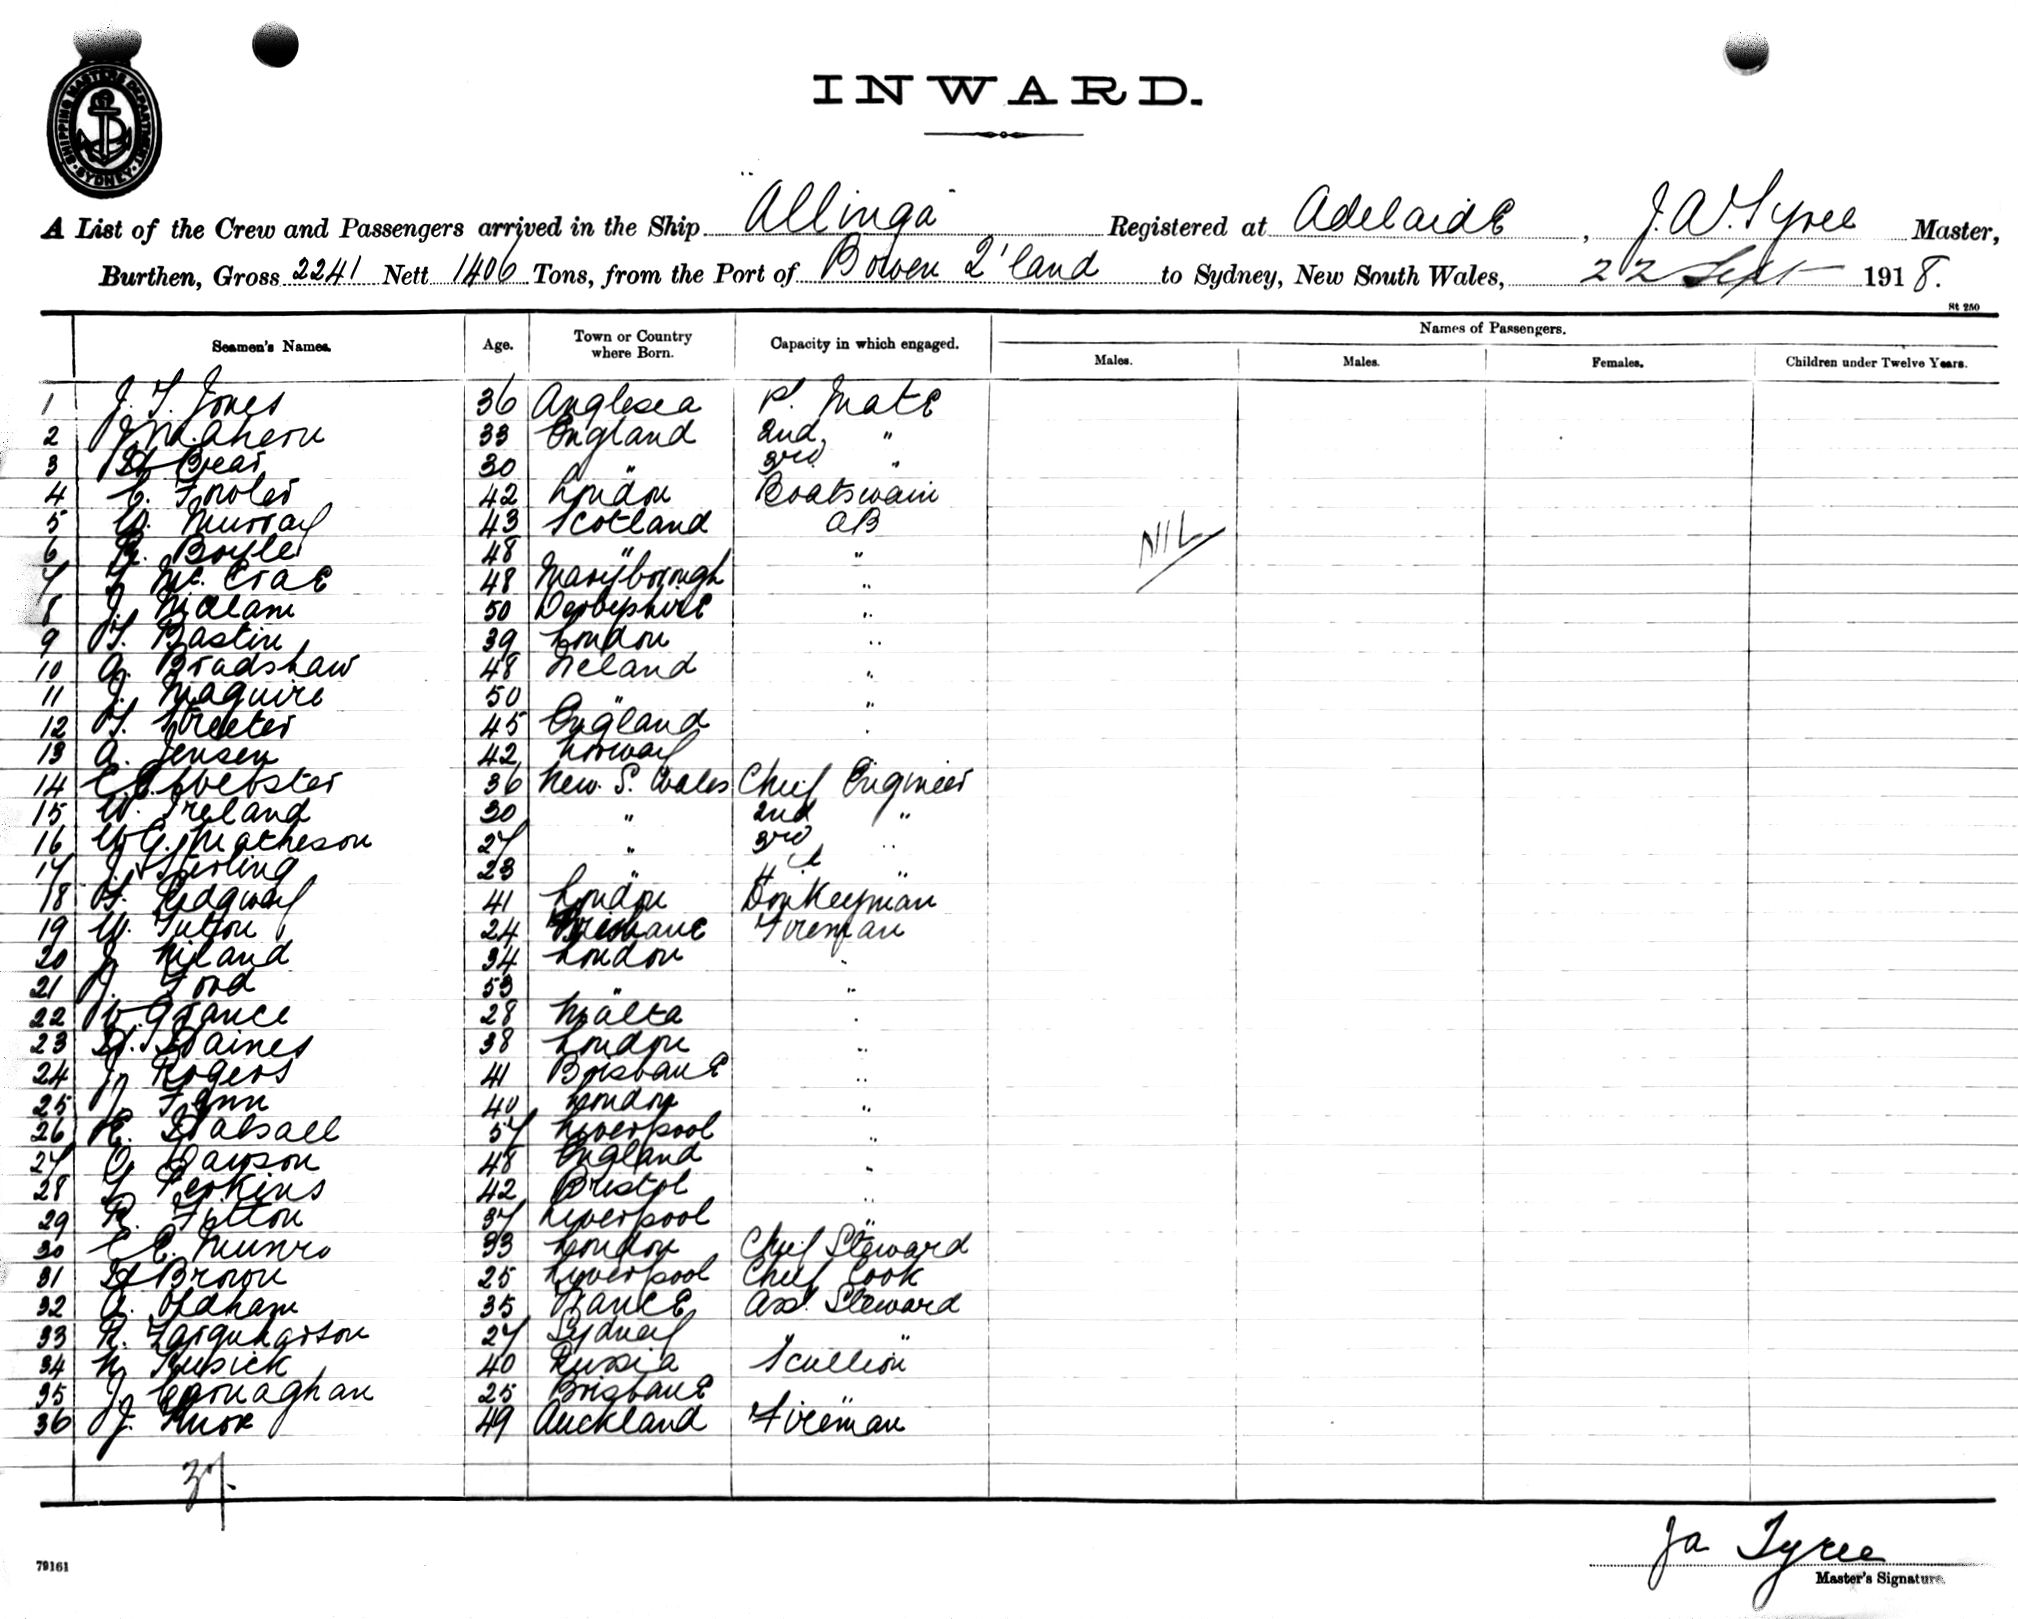 SHIPPING MASTERS DEPARTMENT
SYDNEY
INWARD.
A List of the Crew and Passengers arrived in the Ship "Allinga" Registered at Adelaide, J.A. Tyree Master,
Burthen, Gross 2241 Nett 1406 Tons, from the Port of Bowen Q'land to Sydney, New South Wales, 22 Sept 1918.
St 250
Seamen's Names. Age. Town or Country where Born. Capacity in which engaged. Names of Passengers.
Males. Males. Females. Children under Twelve Years.
1 J. T. Jones 36 Anglesea P. Mate
2 J. Mahern 33 England 2nd "
3 30 " 3rd "
4 C. Fowler 42 London Boatswain
5 W. Murray 43 Scotland AB
NIL
6 R. Boyle 48 " "
7 Mc. Crae 48 Maryborough "
8 J. Midlam 50 Derbyshire "
9 T. Bastin 39 London "
10 A. Bradshaw 48 Ireland "
11 J. Maguire 50 " "
12 Streeter 45 England "
13 A. Jensen 42 Norway
14 Webster 36 New. S. Wales Chief Engineer
15 W. Ireland 30 " 2nd "
16 W G. Matheson 27 " 3rd "
17 J. Sterling 23 " 4th "
18 Ridgway 41 London Donkeyman
19 W. Tutton 24 Brisbane Fireman
20 J. Niland 34 London "
21 J. Ford 53 " "
22 Grance 28 Malta "
23 H. Haines 38 London "
24 J. Rogers 41 Brisbane "
25 Fenn 40 London "
26 Halsall 57 Liverpool "
27 Dawson 48 England "
28 Perkins 42 Bristol "
29 R. Fitton 37 Liverpool "
30 C E. Munro 33 London Chief Steward
31 H Brown 25 Liverpool Chief Cook
32 A. Oldham 35 France Ass. Steward
33 R. Farquharson 27 Sydney "
34 N Kusick 40 Russia Scullion
35 J Carnaghan 25 Brisbane "
36 J. Knox 49 Auckland Fireman
37.
JA Tyree
79161
Master's Signature.